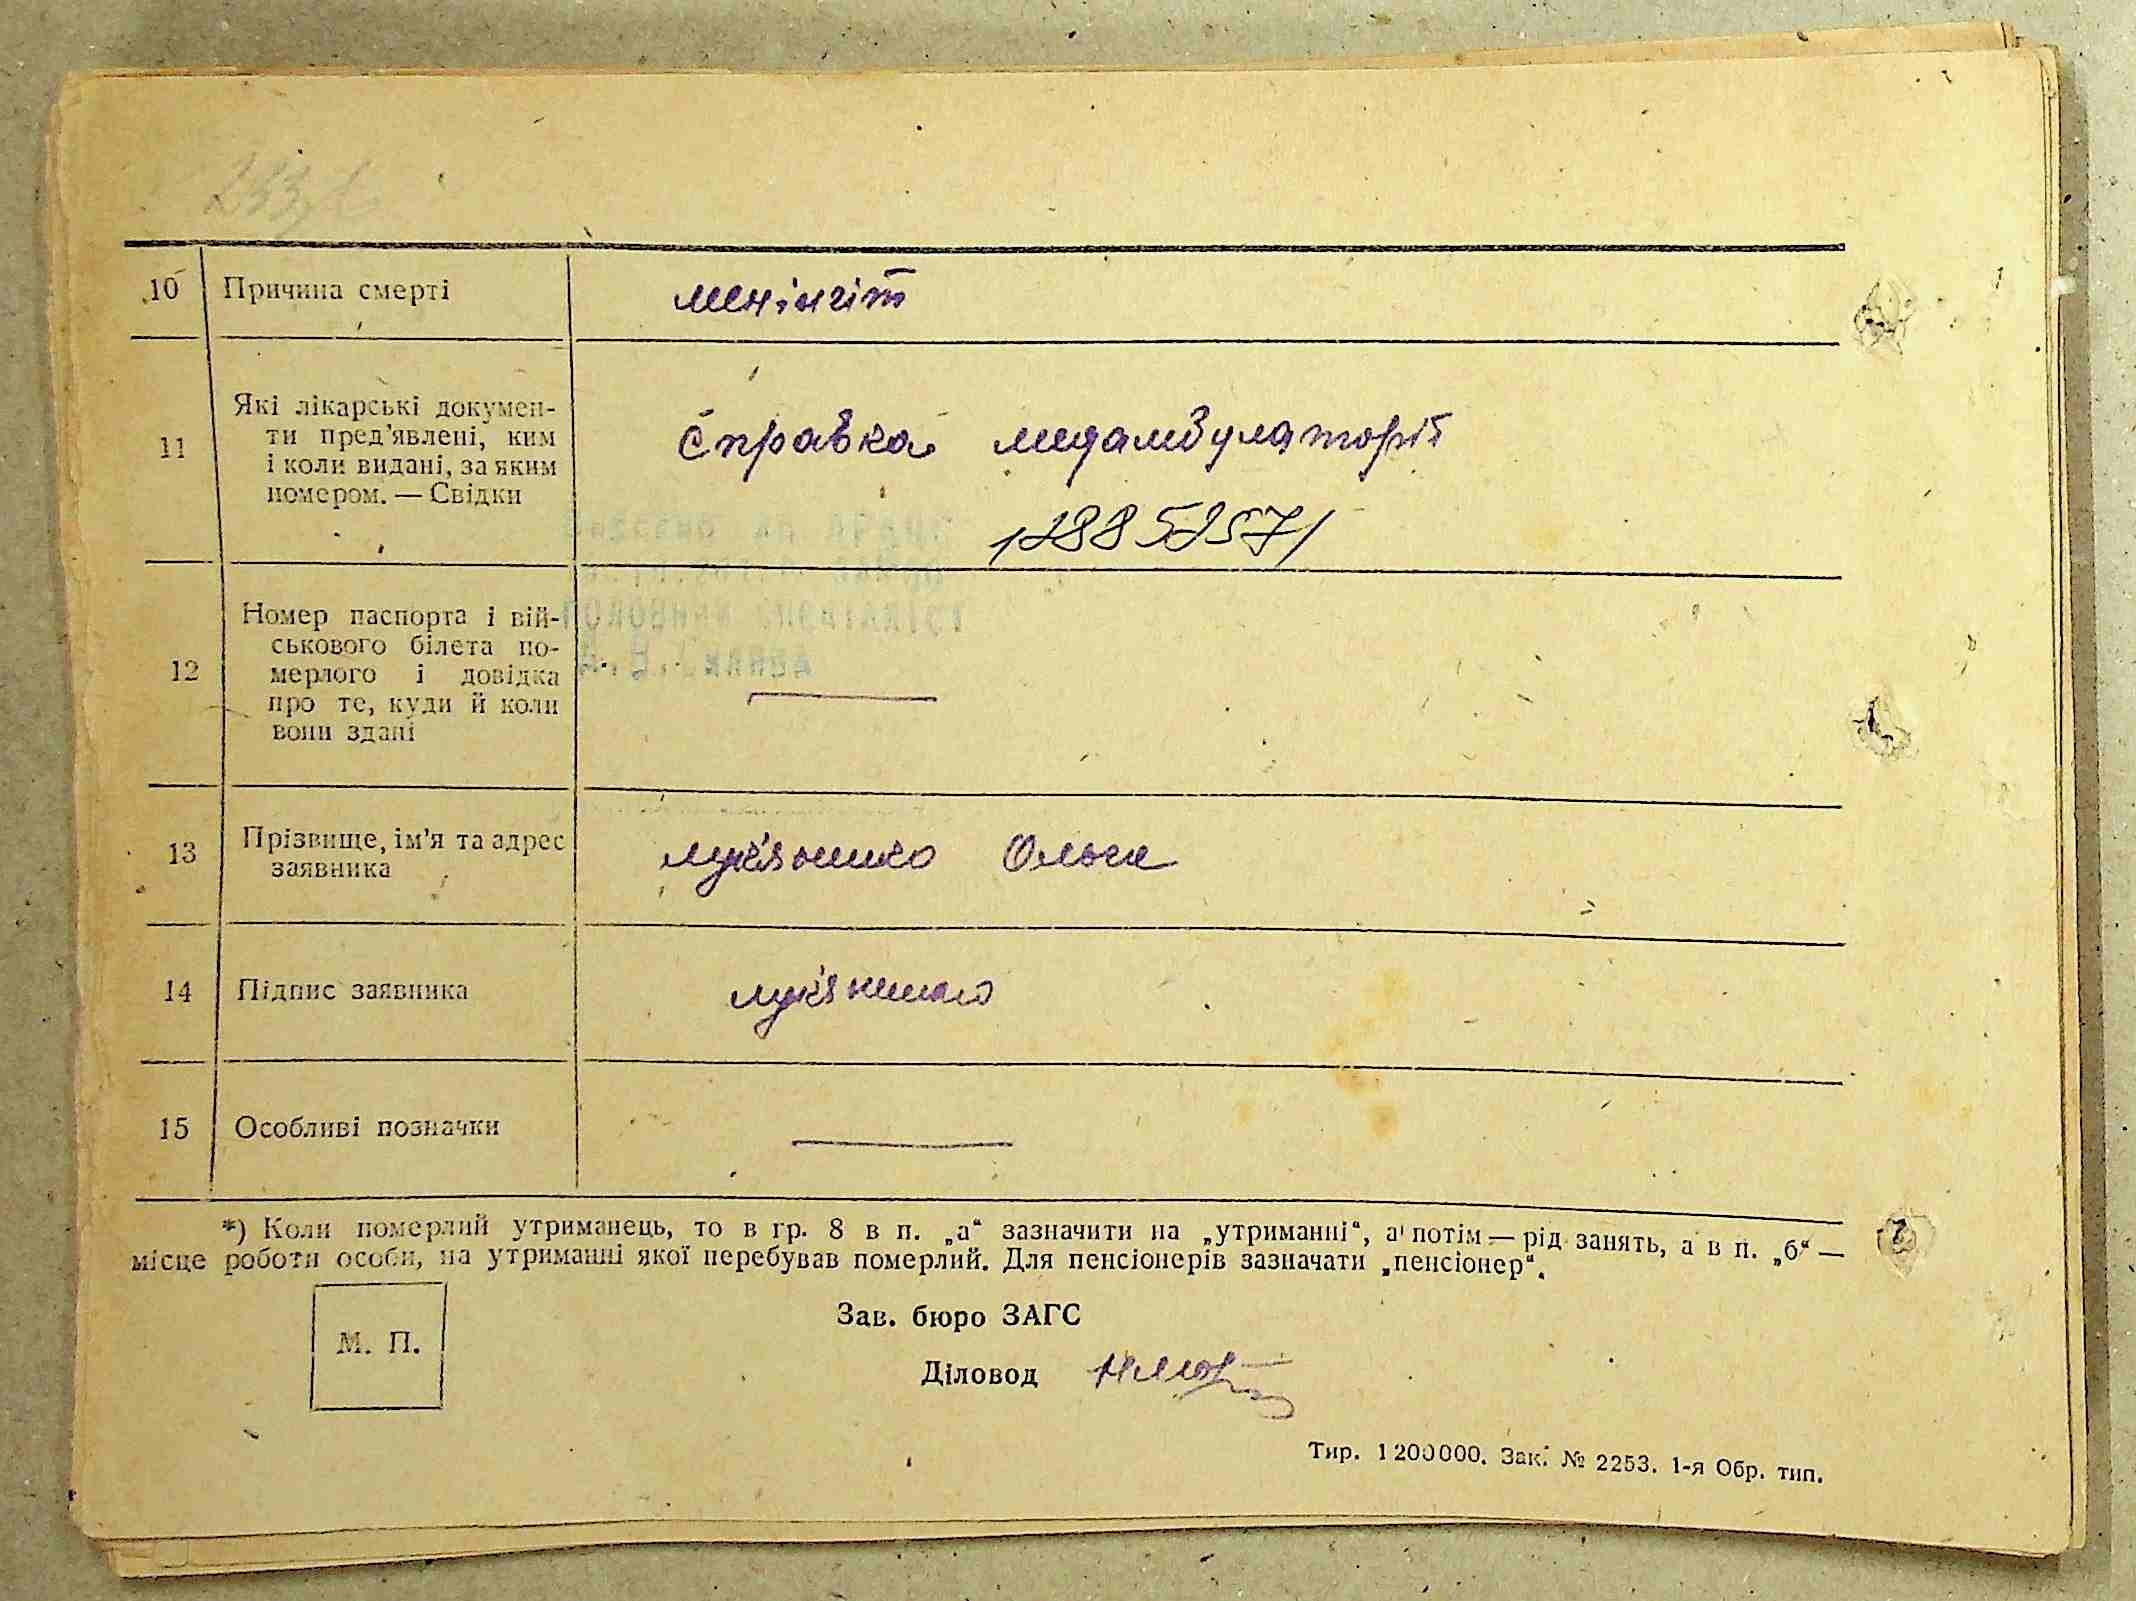 10 Причина смерті менінгіт
11 Які лікарські докумен-
ти пред'явлені, ким
і коли видані, за яким
номером. — Свідки
Справка медамбулаторії
12 Номер паспорта і вій-
ськового білета по-
мерлого і довідка
про те, куди й коли
вони здані
13 Прізвище, ім'я та адрес
заявника
Лук'яненко Ольга
14 Підпис заявника Лук'яненко
15 Особливі позначки
*) Коли померлий утриманець, то в гр. 8 в п. „а“ зазначити на „утриманні“, а потім — рід занять, а в п. „б“ —
місце роботи особи, на утриманні якої перебував померлий. Для пенсіонерів зазначати „пенсіонер“.
Зав. бюро ЗАГС
М. П.
Діловод
Тир. 1200000. Зак. № 2253. 1-я Обр. тип.